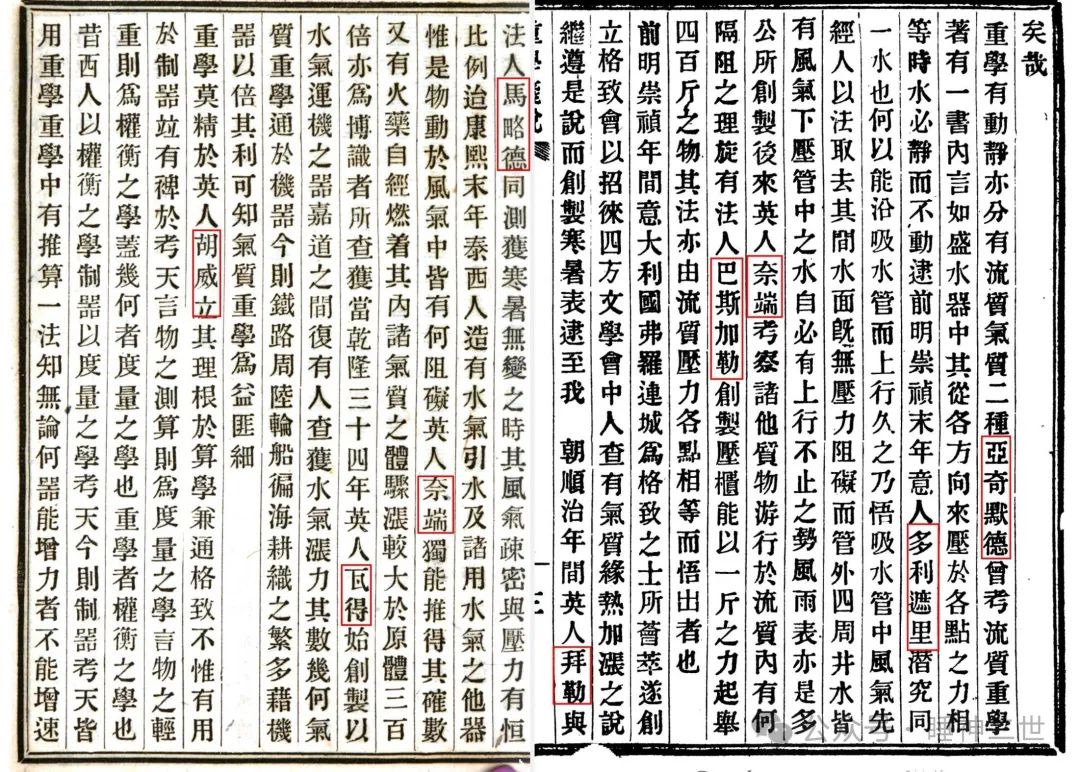 矣哉
重學有動靜亦分有流質氣質二種亞奇默德曾考流質重學
著有一書內言如盛水器中其從各方向來壓於各點之力相
等時水必靜而不動逮前明崇禎末年意人多利遮里潛究同
一水也何以能沿吸水管而上行久之乃悟吸水管中風氣先
經人以法取去其間水面旣無壓力阻礙而管外四周井水皆
有風氣下壓管中之水自必有上行不止之勢風雨表亦是多
公所創製後來英人奈端考察諸他質物游行於流質內有何
隔阻之理旋有法人巴斯加勒創製壓櫃能以一斤之力起舉
四百斤之物其法亦由流質壓力各點相等而悟出者也
前明崇禎年間意大利國弗羅連城爲格致之士所薈萃遂創
立格致會以招徠四方文學會中人查有氣質緣熱加漲之說
繼遵是說而創製寒暑表逮至我 朝順治年間英人拜勒與
法人馬略德同測獲寒暑無變之時其風氣疎密與壓力有恒
比例迨康熙末年泰西人造有水氣引水及諸用水氣之他器
惟是物動於風氣中皆有何阻礙英人奈端獨能推得其確數
又有火藥自經燃着其內諸氣質之體驟漲較大於原體三百
倍亦爲博識者所查獲當乾隆三十四年英人瓦得始創製以
水氣運機之器嘉道之間復有人查獲水氣漲力其數幾何氣
質重學通於機器今則鐵路周陸輪船徧海耕織之繁多藉機
器以倍其利可知氣質重學爲益匪細
重學莫精於英人胡威立其理根於算學兼通格致不惟有用
於制器竝有裨於考天言物之測算則爲度量之學言物之輕
重則爲權衡之學蓋幾何者度量之學也重學者權衡之學也
昔西人以權衡之學制器以度量之學考天今則制器考天皆
用重學重學中有推算一法知無論何器能增力者不能增速
公众号·睡神三世